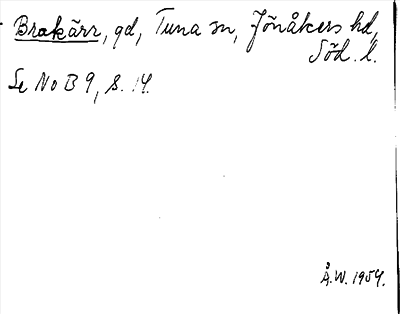 Brakärr, gd, Tuna sn, Jönåkers hd,
Söd. l.
Se No B 9, s. 14.
Å.W. 1954.